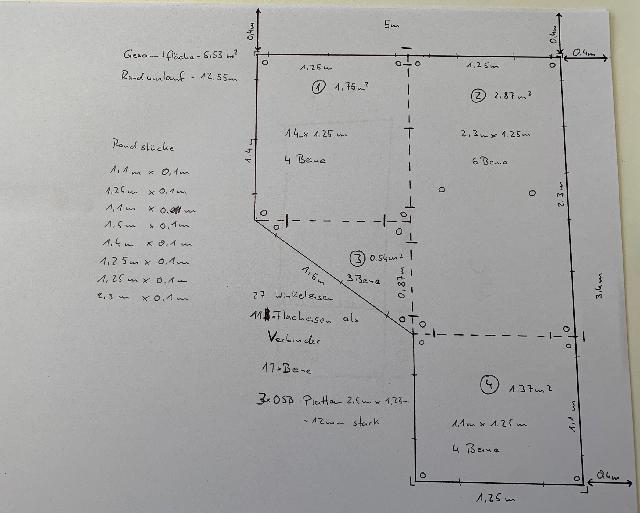 5m
0.4m
0.4m
0.4m
Gesamtfläche - 6,53 m²
Randumlauf - 12.55m
1.25m
1.25m
① 1,75m²
② 2.87m²
1.4m x 1.25m
4 Beine
2.3m x 1.25m
6 Beine
1.4m
2.3m
Randstücke
1,1m x 0,1m
1.25m x 0.1m
1,1m x 0.1m
1.6m x 0.1m
1.4m x 0.1m
1,25m x 0.1m
1.25m x 0.1m
2,3m x 0.1m
③ 0.54m²
3 Beine
1,6m
0,87m
3.4m
27 Winkeleisen
11 Flacheisen als
Verbinder
17x Beine
3x OSB Platten 2,5m x 1,25m
- 12mm stark
④ 1.37m²
1.1m x 1.25m
4 Beine
1,1m
0.4m
1,25m